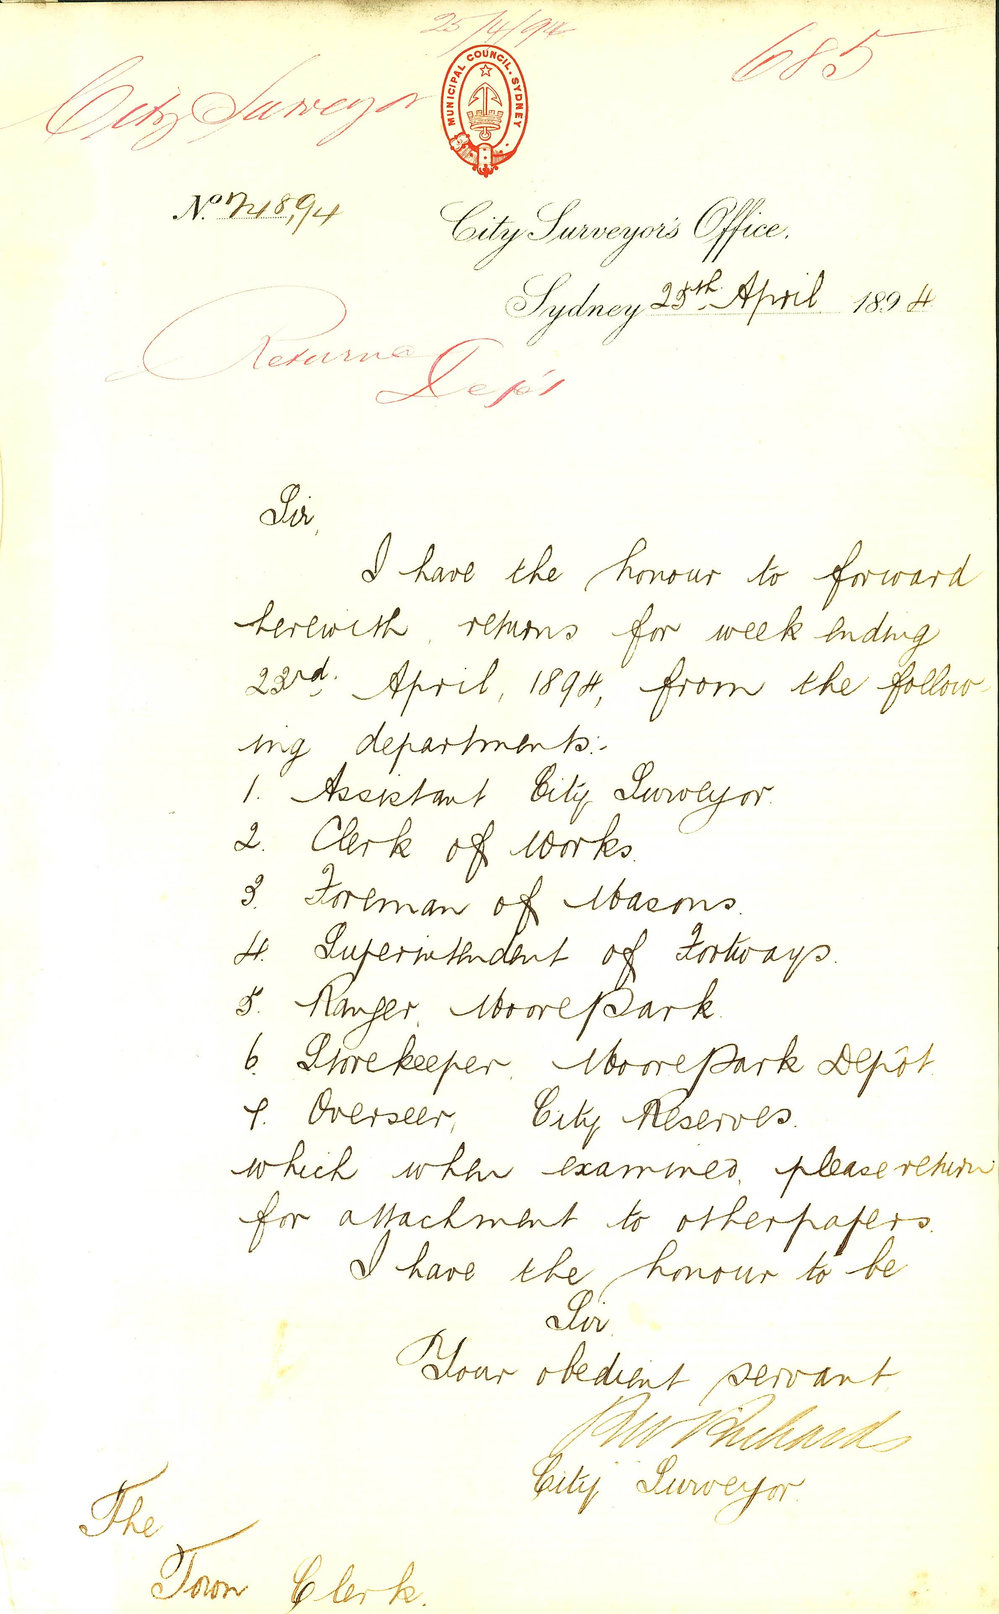 25/4/94
685
City Surveyor
MUNICIPAL COUNCIL. SYDNEY
No. 748,94
City Surveyor's Office.
Sydney 25th. April 1894
Returns
Dep'ts
Sir,
I have the honour to forward
herewith, returns for week ending
23rd. April, 1894, from the follow-
ing departments:-
1. Assistant City Surveyor.
2. Clerk of Works.
3. Foreman of Masons.
4. Superintendent of Footways.
5. Ranger, Moore Park.
6. Storekeeper, Moore Park Depôt.
7. Overseer, City Reserves.
which when examined, please return
for attachment to other papers.
I have the honour to be
Sir,
Your obedient servant,
RW Richards
City Surveyor.
The
Town Clerk.